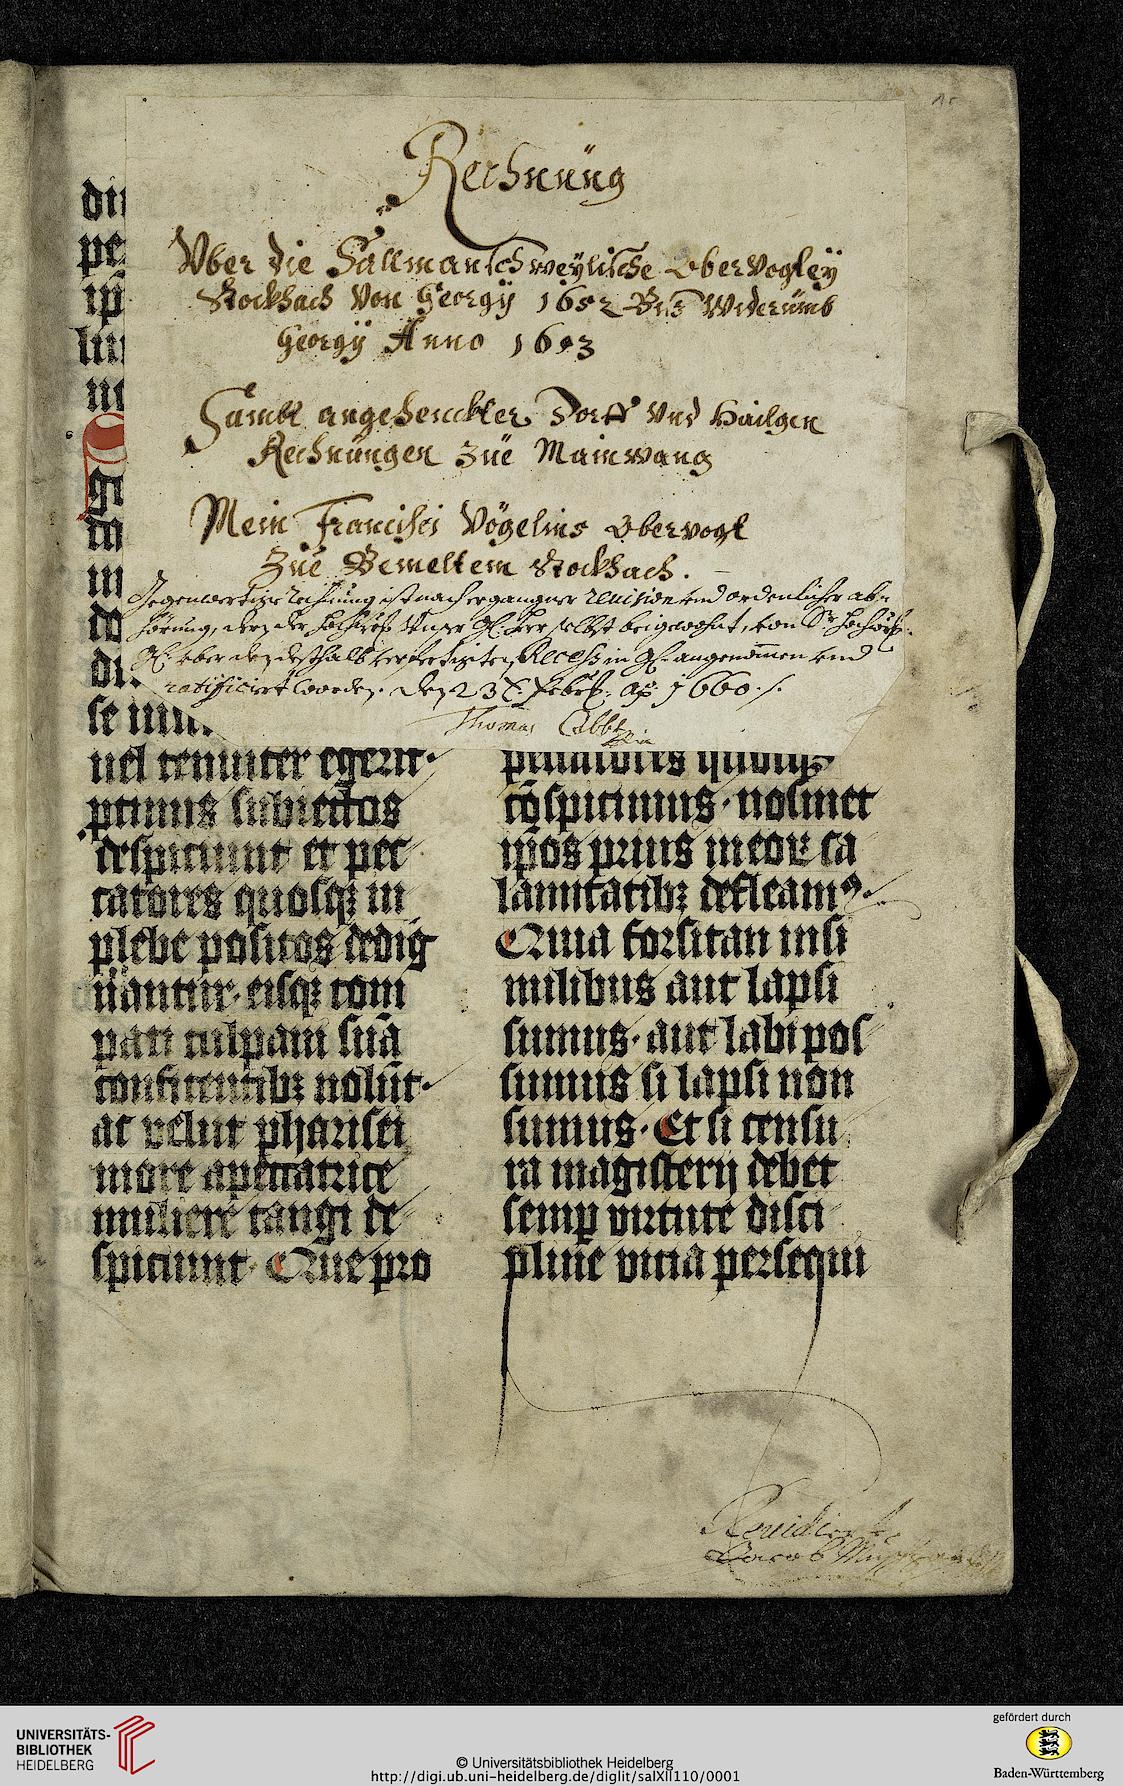 Rechnüng
Vber die Sallmanschweylische Obervogteÿ
Stockhach Von Georgÿ 1652 Biß Widerümb
Georgÿ Anno 1653
Sambt angehenckter Dorff Vnd Hailgen
Rechnüngen züe Mainwang
Mein Francisci Vögelins Obervogt
Züe Bemeltem Stockhach.
Gegenwertige rechnung ist nach ergangner reuision vnd ordenlicher ab-
hörung, der selbst beigewohnt, von
vber den desthalb Recess in angenommen vnd
ratificirt worden. Den 23 Febr. 1660
Thomas Abbt
di
pe
ip
lui
ne
se
uel tenuiter egerit
primus subiectos
despiciunt et pec
catores quosqꝫ in
plebe positos dedig
nantur. eisqꝫ com
pati culpam suā
confitentibꝫ nolūt
ac velut pharisei
more a peccatrice
muliere tangi de
spiciunt. Que pro
cōspicimus. nosmet
ip̄os prius in eoꝝ ca
lamitatibꝫ defleamꝰ.
Quia forsitan in si
milibus aut lapsi
sumus. aut labi pos
sumus si lapsi non
sumus. Et si censu
ra magisterij debet
semꝑ virtute disci
pline vitia persequi
Reuidirt
Jacob
UNIVERSITÄTS-
BIBLIOTHEK
HEIDELBERG
© Universitätsbibliothek Heidelberg
http://digi.ub.uni-heidelberg.de/diglit/salXII110/0001
gefördert durch
Baden-Württemberg